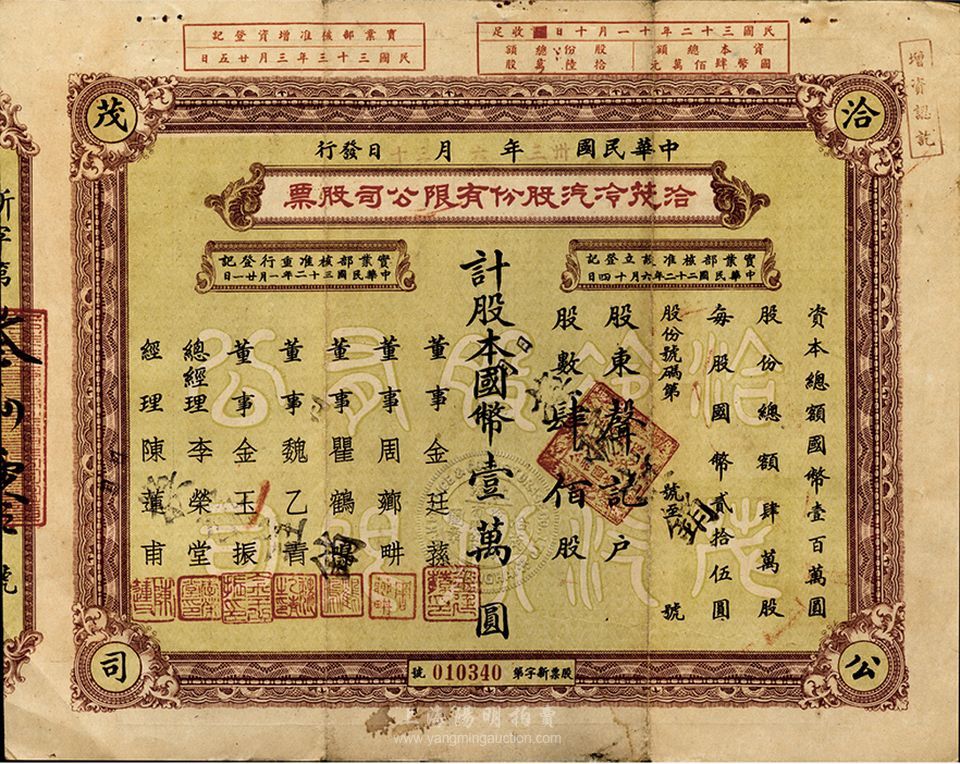 民國三十二年十一月十日收足
資本總額 股份總額
國幣肆佰萬元 拾陸萬股
實業部核准增資登記
民國三十三年三月廿五日
增資認訖
洽
茂
公
司
中華民國 年 月 日發行
洽茂冷汽股份有限公司股票
實業部核准設立登記
中華民國二十二年六月十四日
實業部核准重行登記
中華民國三十二年一月廿一日
資本總額國幣壹百萬圓
股份總額肆萬股
每股國幣貳拾伍圓
股份號碼第 號至 號
股東 聲記 户
股數 肆佰 股
計股本國幣壹萬圓
董事 金廷蓀
董事 周薌畊
董事 瞿鶴鳴
董事 魏乙青
董事 金玉振
總經理 李榮堂
經理 陳蓮甫
股票新字第 010340 號
新字第
號
上海陽明拍賣
www.yangmingauction.com